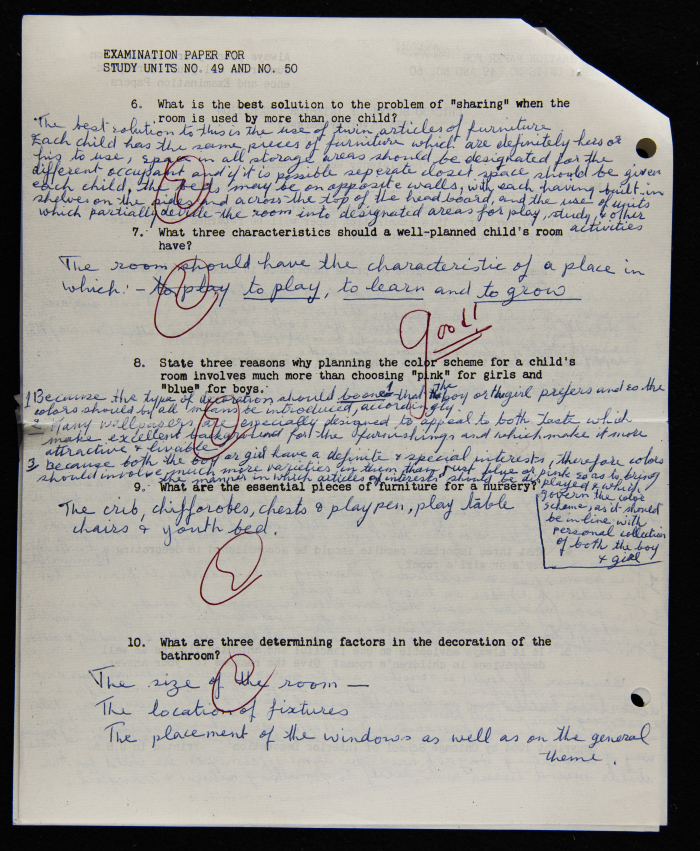 EXAMINATION PAPER FOR
STUDY UNITS NO. 49 AND NO. 50
6. What is the best solution to the problem of "sharing" when the
room is used by more than one child?
The best solution to this is the use of twin articles of furniture
Each child has the same pieces of furniture which are definitely hers or
his to use, space in all storage areas should be designated for the
different occupant and if it is possible seperate closet space should be given
each child, the beds may be on opposite walls, with each having built-in
shelves on the sides and across the top of the headboard, and the use of units
which partially divide the room into designated areas for play, study, & other
activities
7. What three characteristics should a well-planned child's room
have?
The room should have the characteristic of a place in
which: - to play to play, to learn and to grow
Good!
8. State three reasons why planning the color scheme for a child's
room involves much more than choosing "pink" for girls and
"blue" for boys.
1 Because the type of decoration should be one that the boy or the girl prefers and so the
colors should by all means be introduced, accordingly.
2 Many wallpapers are especially designed to appeal to both taste which
make excellent background for the furnishings and which make it more
attractive & livable
3 because both the boy or girl have a definite & special interests, therefore colors
should involve much more varieties in them than just blue or pink so as to bring
the manner in which articles of interests should be displayed & which
govern the color
scheme, as it should
be in line with
personal collection
of both the boy
& girl
9. What are the essential pieces of furniture for a nursery?
The crib, chifforobes, chests & play pen, play table
chairs & youth bed.
10. What are three determining factors in the decoration of the
bathroom?
The size of the room —
The location of fixtures
The placement of the windows as well as on the general
theme.